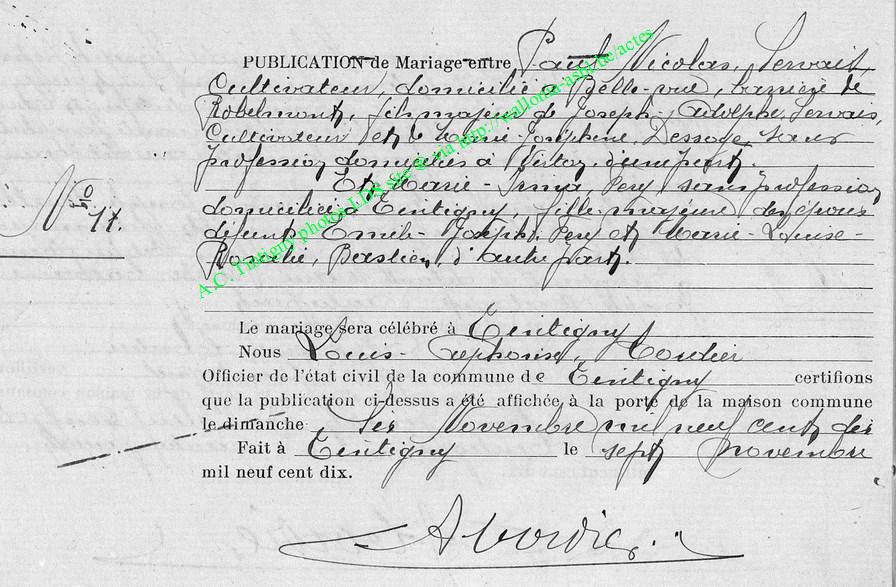 PUBLICATION de Mariage entre Paul Nicolas, Servais,
Cultivateur, domicilié à Belle-vue, barrière de
Robelmont, fils majeur de Joseph-Adolphe, Servais,
Cultivateur et de Marie-Joséphine, Dessoye sans
profession domiciliés à Virton, d'une part.
Et Marie-Irma, Pery sans profession
domiciliée à Tintigny, fille majeure des époux
défunts Emile-Joseph, Pery et Marie-Louise-
Rosalie, Bastien, d'autre part.
N° 17.
Le mariage sera célébré à Tintigny
Nous Louis-Alphonse,
Officier de l'état civil de la commune de Tintigny certifions
que la publication ci-dessus a été affichée à la porte de la maison commune
le dimanche Six Novembre mil neuf cent dix
Fait à Tintigny le sept novembre
mil neuf cent dix.
A.C. Tintigny photos LDS site © via http://wallonia-asbl.be/actes